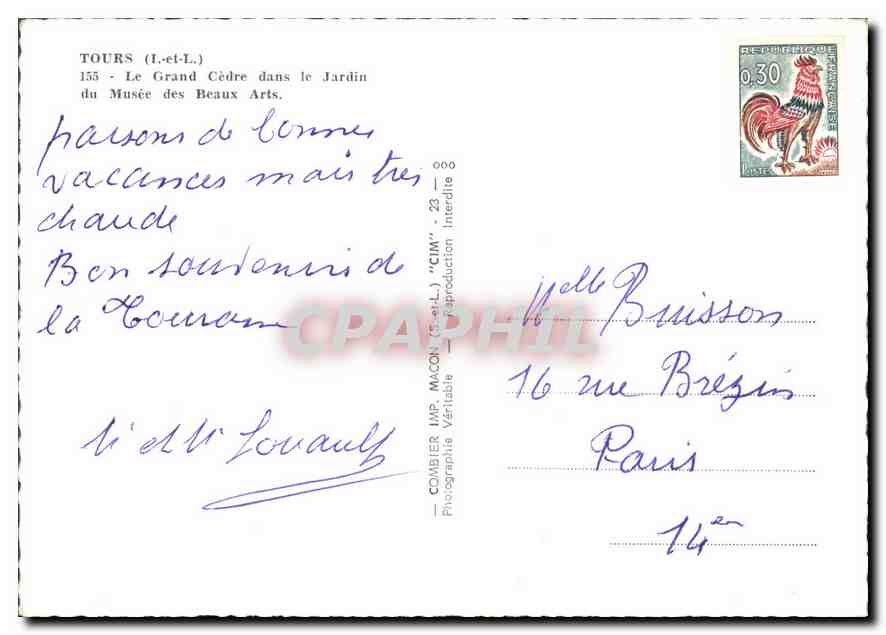 TOURS (I.-et-L.)
155 - Le Grand Cèdre dans le Jardin
du Musée des Beaux Arts.
passons de bonnes
vacances mais tres
chaude
Bon souvenirs de
la Touraine
et
— COMBIER IMP. MACON (S.-et-L.) "CIM" - 23 — 000
Photographie Véritable — Reproduction Interdite
REPUBLIQUE FRANÇAISE
0,30
POSTES
Melle Buisson
16 rue Brézin
Paris
14em
CPAPHIL